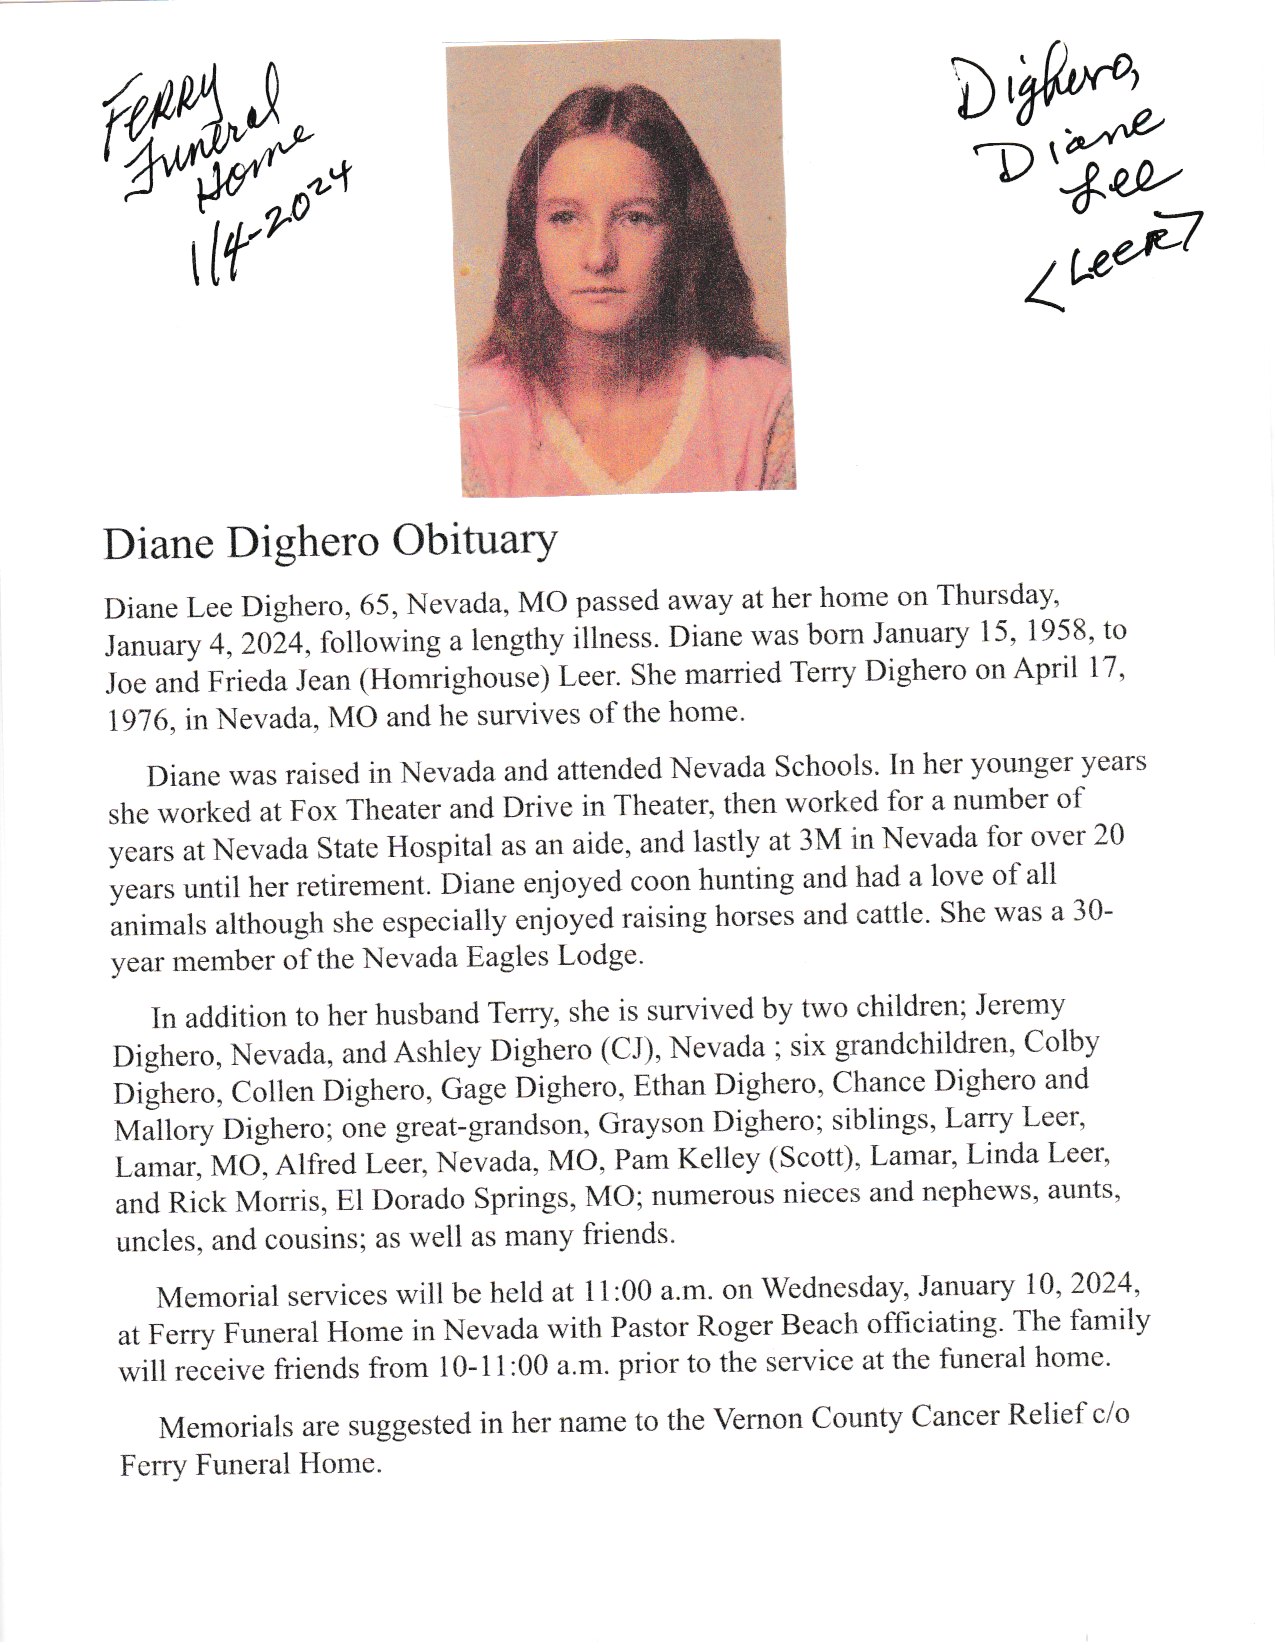 FERRY
Funeral
Home
1/4-2024
Dighero,
Diane
Lee
<LeeR>
Diane Dighero Obituary
Diane Lee Dighero, 65, Nevada, MO passed away at her home on Thursday,
January 4, 2024, following a lengthy illness. Diane was born January 15, 1958, to
Joe and Frieda Jean (Homrighouse) Leer. She married Terry Dighero on April 17,
1976, in Nevada, MO and he survives of the home.
Diane was raised in Nevada and attended Nevada Schools. In her younger years
she worked at Fox Theater and Drive in Theater, then worked for a number of
years at Nevada State Hospital as an aide, and lastly at 3M in Nevada for over 20
years until her retirement. Diane enjoyed coon hunting and had a love of all
animals although she especially enjoyed raising horses and cattle. She was a 30-
year member of the Nevada Eagles Lodge.
In addition to her husband Terry, she is survived by two children; Jeremy
Dighero, Nevada, and Ashley Dighero (CJ), Nevada ; six grandchildren, Colby
Dighero, Collen Dighero, Gage Dighero, Ethan Dighero, Chance Dighero and
Mallory Dighero; one great-grandson, Grayson Dighero; siblings, Larry Leer,
Lamar, MO, Alfred Leer, Nevada, MO, Pam Kelley (Scott), Lamar, Linda Leer,
and Rick Morris, El Dorado Springs, MO; numerous nieces and nephews, aunts,
uncles, and cousins; as well as many friends.
Memorial services will be held at 11:00 a.m. on Wednesday, January 10, 2024,
at Ferry Funeral Home in Nevada with Pastor Roger Beach officiating. The family
will receive friends from 10-11:00 a.m. prior to the service at the funeral home.
Memorials are suggested in her name to the Vernon County Cancer Relief c/o
Ferry Funeral Home.